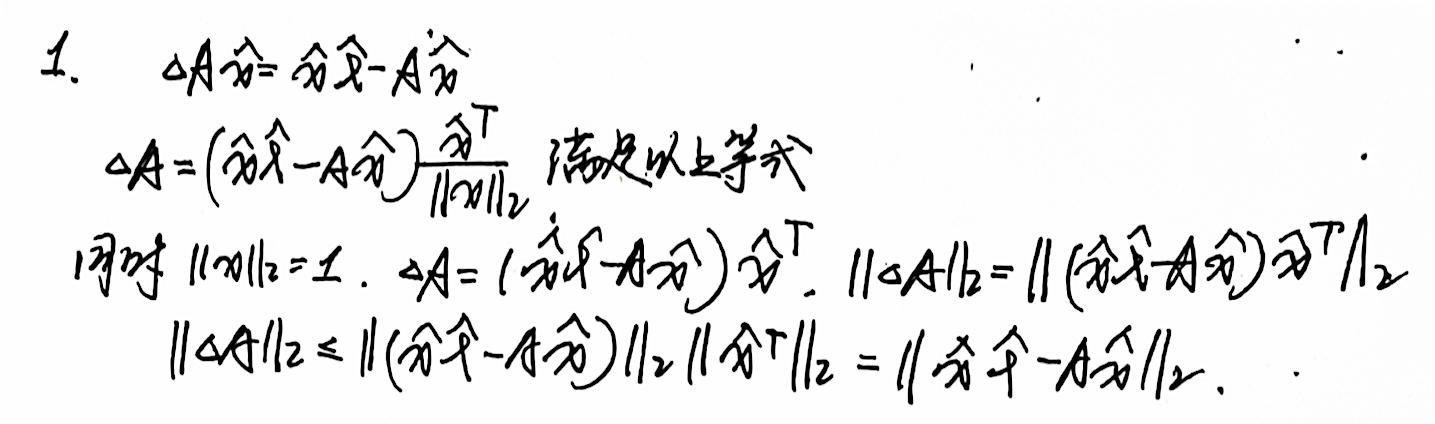 1. ΔA x̂ = x̂ λ̂ - A x̂
ΔA = (x̂ λ̂ - A x̂) x̂ᵀ / ||x||₂ 满足以上等式
同时 ||x||₂ = 1. ΔA = (x̂ λ̂ - A x̂) x̂ᵀ. ||ΔA||₂ = ||(x̂ λ̂ - A x̂) x̂ᵀ||₂
||ΔA||₂ ≤ ||(x̂ λ̂ - A x̂)||₂ ||x̂ᵀ||₂ = || x̂ λ̂ - A x̂ ||₂.